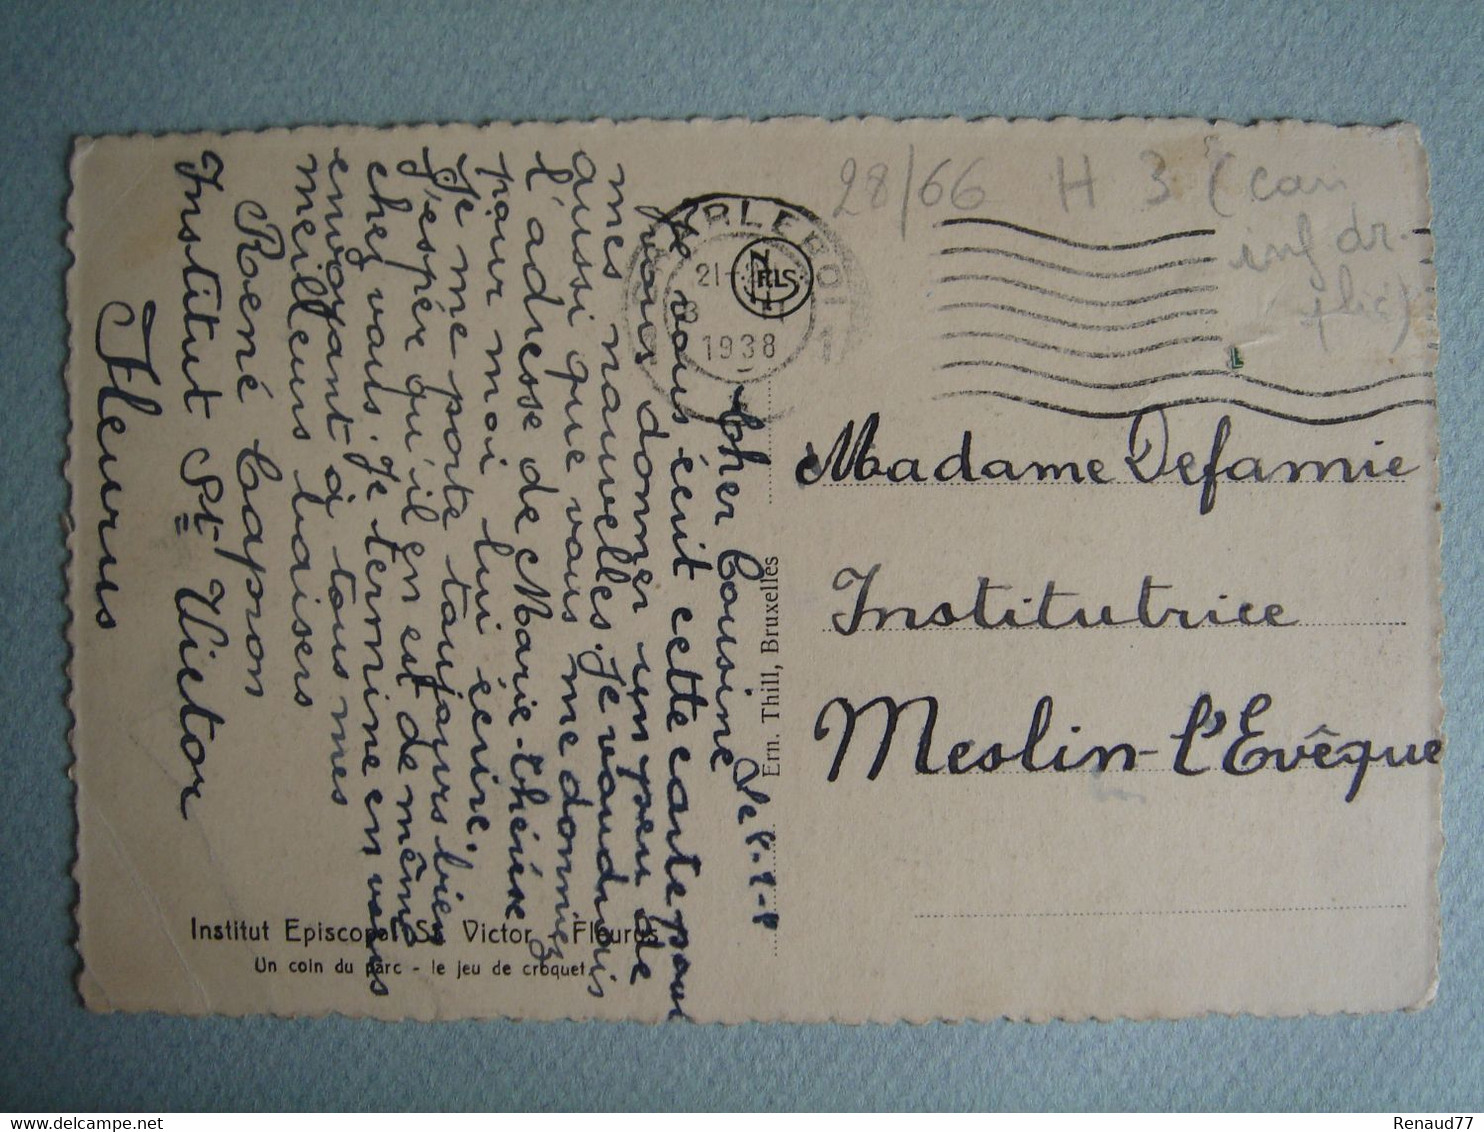 Le 8-8-8
Cher Cousine
Je vous écrit cette carte pour
vous donner un peu de
mes nouvelles. Je voudrais
aussi que vous me donniez
l'adresse de Marie-thérèse
pour moi lui écrire.
Je me porte toujours bien
J'espér qu'il en est de même
chez vous. Je termine en vous
envoyant à tous mes
meilleurs baisers
René Capron
Institut St Victor
Fleurus
Institut Episcopal St. Victor - Fleurus
Un coin du parc - le jeu de croquet
Ern. Thill, Bruxelles
NELS
1938
28/66 H 3 (can
inf dr.
plié)
Madame Defamie
Institutrice
Meslin-l'Evêque
Renaud77
delcampe.net